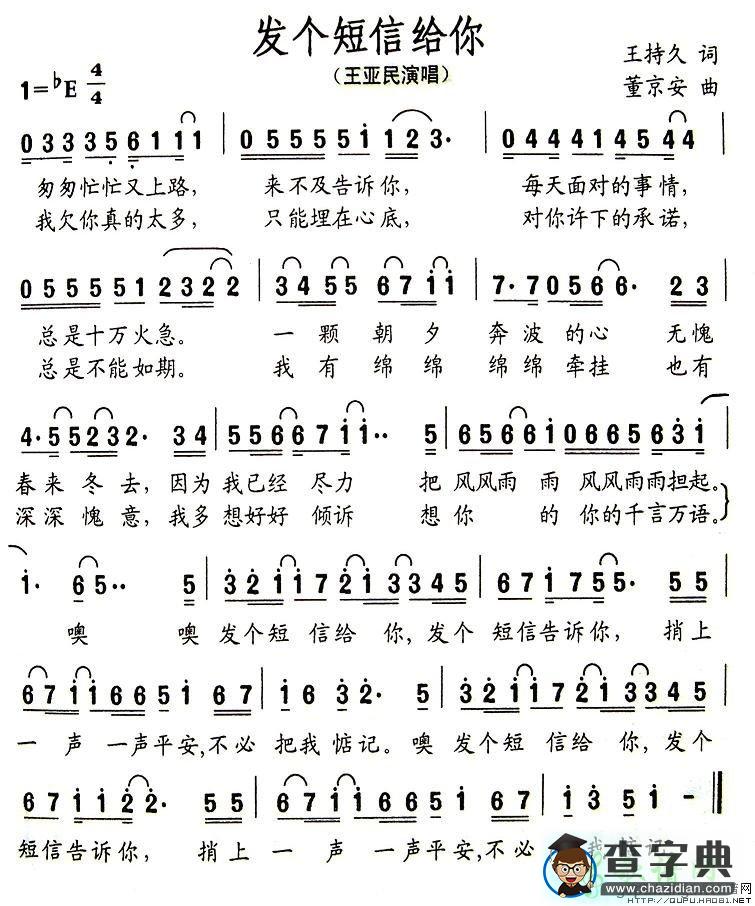 发个短信给你
(王亚民演唱)
王持久 词
1=♭E 4/4
董京安 曲
0 3 3 3 5 6 1 1 1 | 0 5 5 5 5 5 1 1 2 3· | 0 4 4 4 4 1 4 5 4 4 4 |
匆匆忙忙又上路, 来不及告诉你, 每天面对的事情,
我欠你真的太多, 只能埋在心底, 对你许下的承诺,
0 5 5 5 5 5 1 2 3 2 2 | 3 4 5 5 6 7 1 1 | 7· 7 0 5 6 6· 2 3 |
总是十万火急。 一颗朝夕奔波的心 无愧
总是不能如期。 我有绵绵绵绵牵挂 也有
4· 5 5 2 3 2· 3 4 | 5 5 6 6 7 1 1·· 5 | 6 5 6 1 0 6 6 5 6 3 1 |
春来冬去, 因为我已经尽力 把风风雨雨风风雨雨担起。
深深愧意, 我多想好好倾诉 想你的你的千言万语。
1· 6 5·· 5 | 3 2 1 1 7 2 1 3 3 3 4 5 | 6 7 1 7 5 5· 5 5 |
噢 噢 发个短信给你, 发个短信告诉你, 捎上
6 7 1 1 6 6 5 1 6 7 | 1 6 3 2· 5 | 3 2 1 1 7 2 1 3 3 3 4 5 |
一声一声平安,不必把我惦记。噢 发个短信给你, 发个
6 7 1 1 2 2· 5 5 | 6 7 1 1 6 6 5 1 6 7 | 1 3 5 1 - ‖
短信告诉你, 捎上一声一声平安,不必
查字典
www.chazidian.com